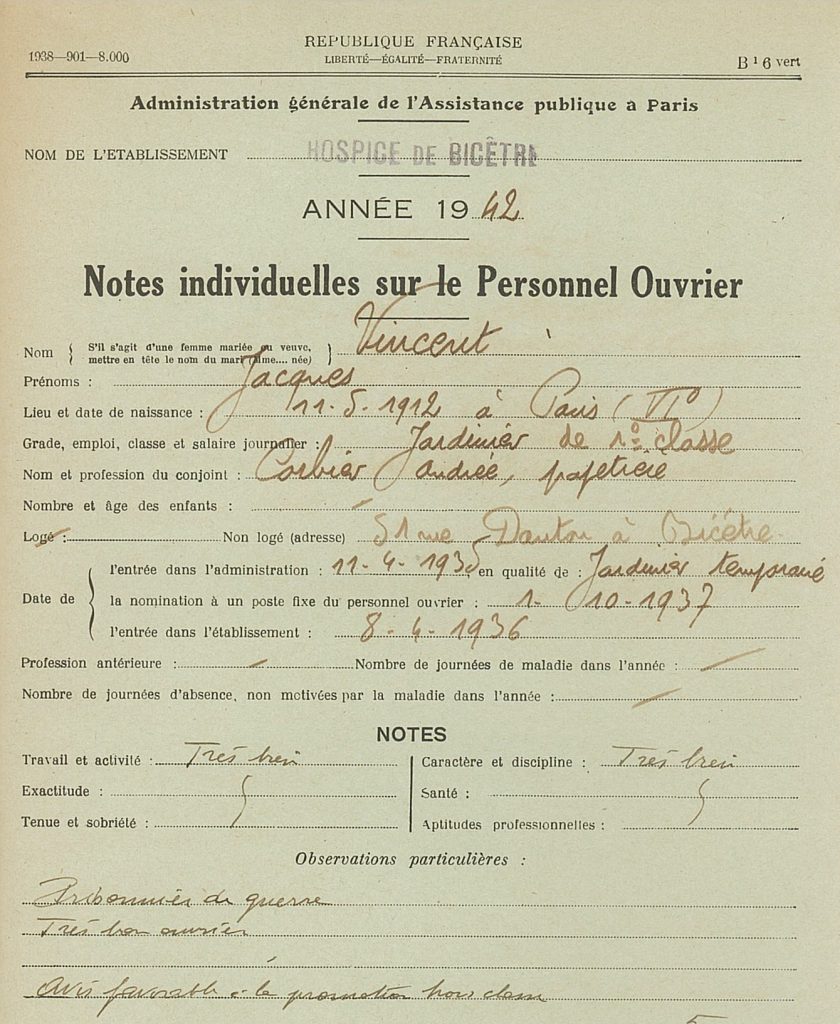 REPUBLIQUE FRANÇAISE
1938—901—8.000 LIBERTÉ—ÉGALITÉ—FRATERNITÉ B 1 6 vert
Administration générale de l'Assistance publique à Paris
NOM DE L'ETABLISSEMENT HOSPICE DE BICÊTRE
ANNÉE 1942
Notes individuelles sur le Personnel Ouvrier
Nom { S'il s'agit d'une femme mariée ou veuve, mettre en tête le nom du mari (Mme.... née) } Vincent
Prénoms : Jacques
Lieu et date de naissance : 11-5-1912 à Paris (VIº)
Grade, emploi, classe et salaire journalier : Jardinier de 1º classe
Nom et profession du conjoint : Corbier Andrée, papetière
Nombre et âge des enfants : –
Logé : Non logé (adresse) 51 rue Danton à Bicêtre.
Date de { l'entrée dans l'administration : 11-4-1935 en qualité de : Jardinier temporaire
la nomination à un poste fixe du personnel ouvrier : 1-10-1937
l'entrée dans l'établissement : 8-4-1936
Profession antérieure : – Nombre de journées de maladie dans l'année : –
Nombre de journées d'absence, non motivées par la maladie dans l'année : –
NOTES
Travail et activité : Très bien Caractère et discipline : Très bien
Exactitude : Santé :
Tenue et sobriété : Aptitudes professionnelles :
Observations particulières :
Prisonnier de guerre
Très bon ouvrier
Avis favorable à la promotion hors classe